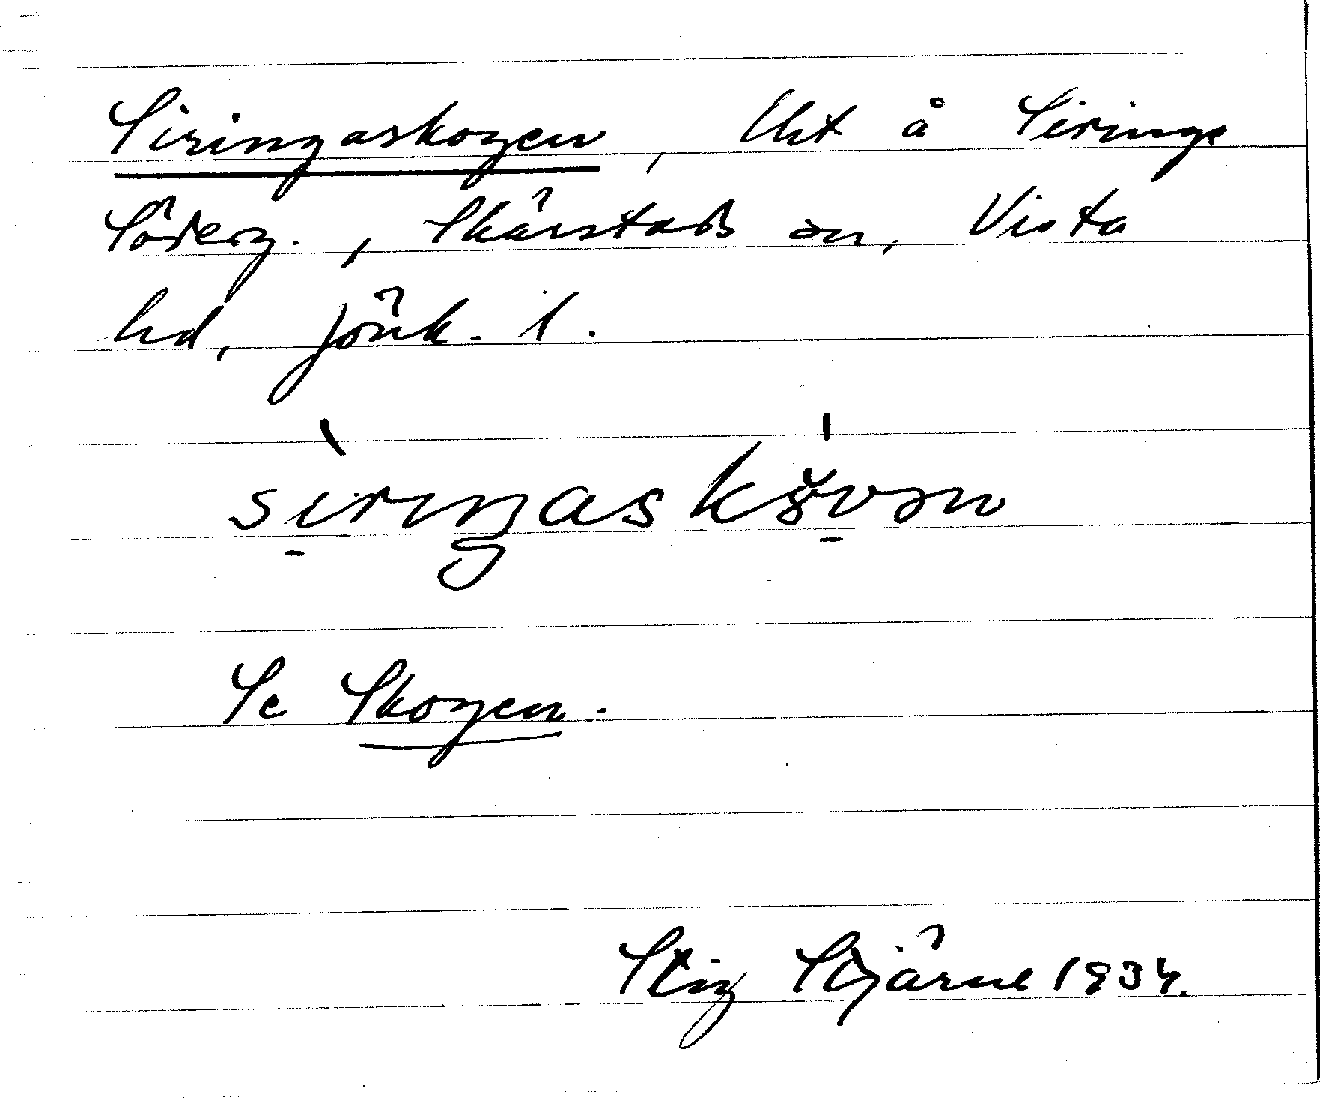 Siringaskogen, Lht å Siringe
Söderg., Skärstads sn, Vista
hd, Jönk. l.
sìriŋaskŏ́vən
Se Skogen.
Stig Stjärne 1934.